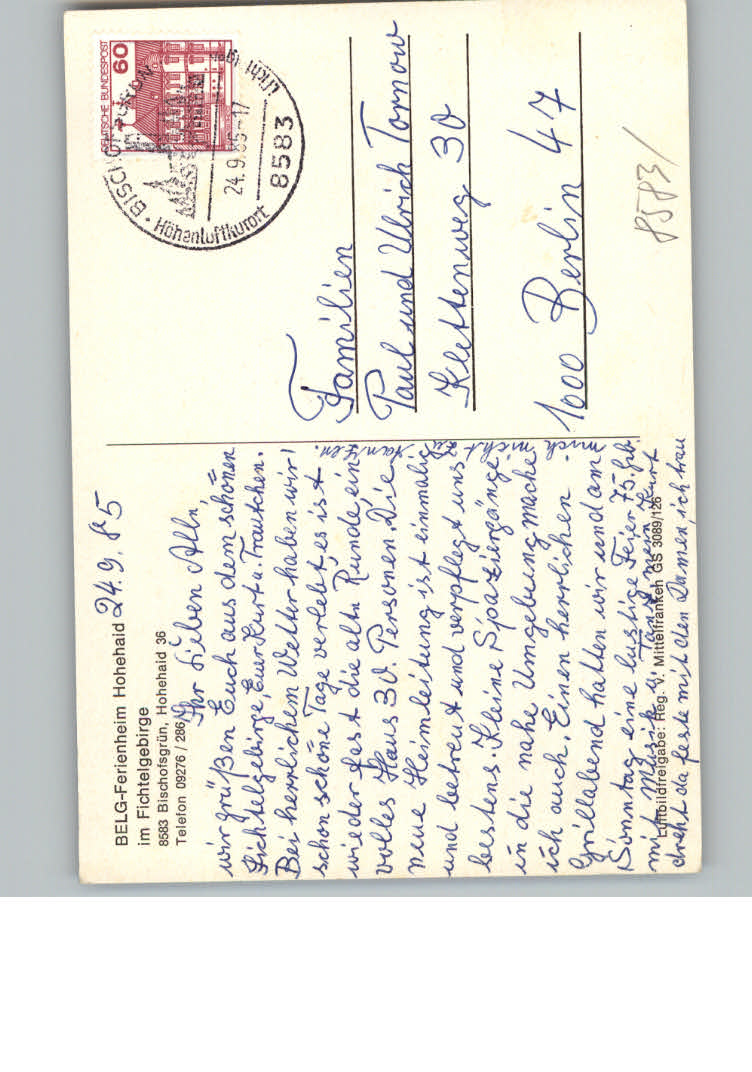 BELG-Ferienheim Hohehaid
im Fichtelgebirge
8583 Bischofsgrün, Hohehaid 36
Telefon 09276/286
24.9.85
Ihr Lieben Alln,
wir grüßen Euch aus dem schönen
Fichtelgebirge, Euer Kurt u. Trautchen.
Bei herrlichen Wetter haben wir
schon schöne Tage verlebt, es ist
wieder fast die alte Runde ein
volles Haus 30. Personen. Die
neue Heimleitung ist einmalig
und betreut und verpflegt uns
bestens. Kleine Spaziergänge
in die nahe Umgebung mache
ich auch. Einen herrlichen
Grillabend hatten wir und am
Sonntag eine lustige Feier 75. Geb.
mit Musik u. Tanz wenn Kurt
dreht da feste mit den Damen, ich trau
mich nicht zu
tanzen.
Luftbildfreigabe: Reg. v. Mittelfranken GS 3089/126
DEUTSCHE BUNDESPOST
60
24.9.85-17
8583
Höhenluftkurort
Familien
Paul und Ulrich Tornow
Klettenweg 30
1000 Berlin 47
8583/